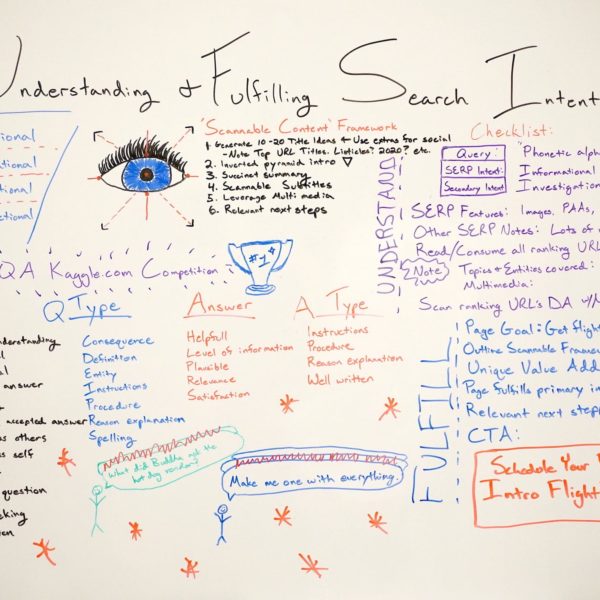 Understanding & Fulfilling Search Intent
ational
ational
ctional
"Scannable Content" Framework
1. Generate 10-20 Title Ideas & Use extras for social
- Note Top URL Titles. Listicles? 2020? etc.
2. Inverted pyramid intro ▽
3. Succinct summary
4. Scannable Subtitles
5. Leverage Multi media
6. Relevant next steps
QA Kaggle.com Competition
#1
Q Type
Consequence
Definition
Entity
Instructions
Procedure
Reason explanation
Spelling
Answer
Helpfull
Level of information
Plausible
Relevance
Satisfaction
A Type
Instructions
Procedure
Reason explanation
Well written
nderstanding
al
answer
accepted answer
as others
as self
question
eking
en
What did Buddha ask the
hot dog vendor?
Make me one with everything.
UNDERSTAND
Checklist:
Query: "Phonetic alph
SERP Intent: Informational
Secondary Intent Investigation
SERP Features: Images, PAAs,
Other SERP Notes: Lots of
Read/Consume all ranking URL
Note: Topics & Entities covered:
Multimedia:
Scan ranking URL's DA w/M
FULFILL
Page Goal: Get flight
Outline Scannable Framew
Unique Value Add
Page fulfills primary in
Relevant next step
CTA:
Schedule Your
Intro Flight